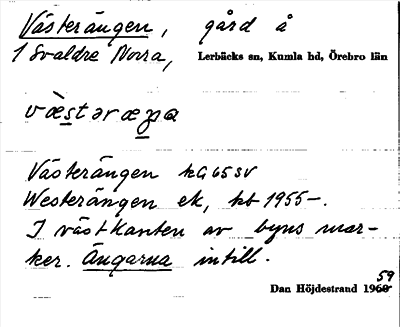 Västerängen, gård å
1 Svaldre Norra, Lerbäcks sn, Kumla hd, Örebro län
Västerängen kG65SV
Westerängen ek, kb 1955–.
I västkanten av byns mar-
ker. Ängarna intill.
59
Dan Höjdestrand 1960